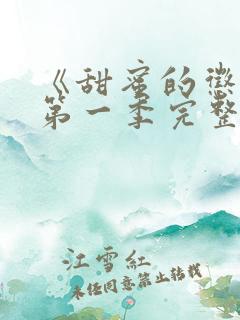 《甜蜜的懲
第一季完整
江雪紅
未经同意禁止转载